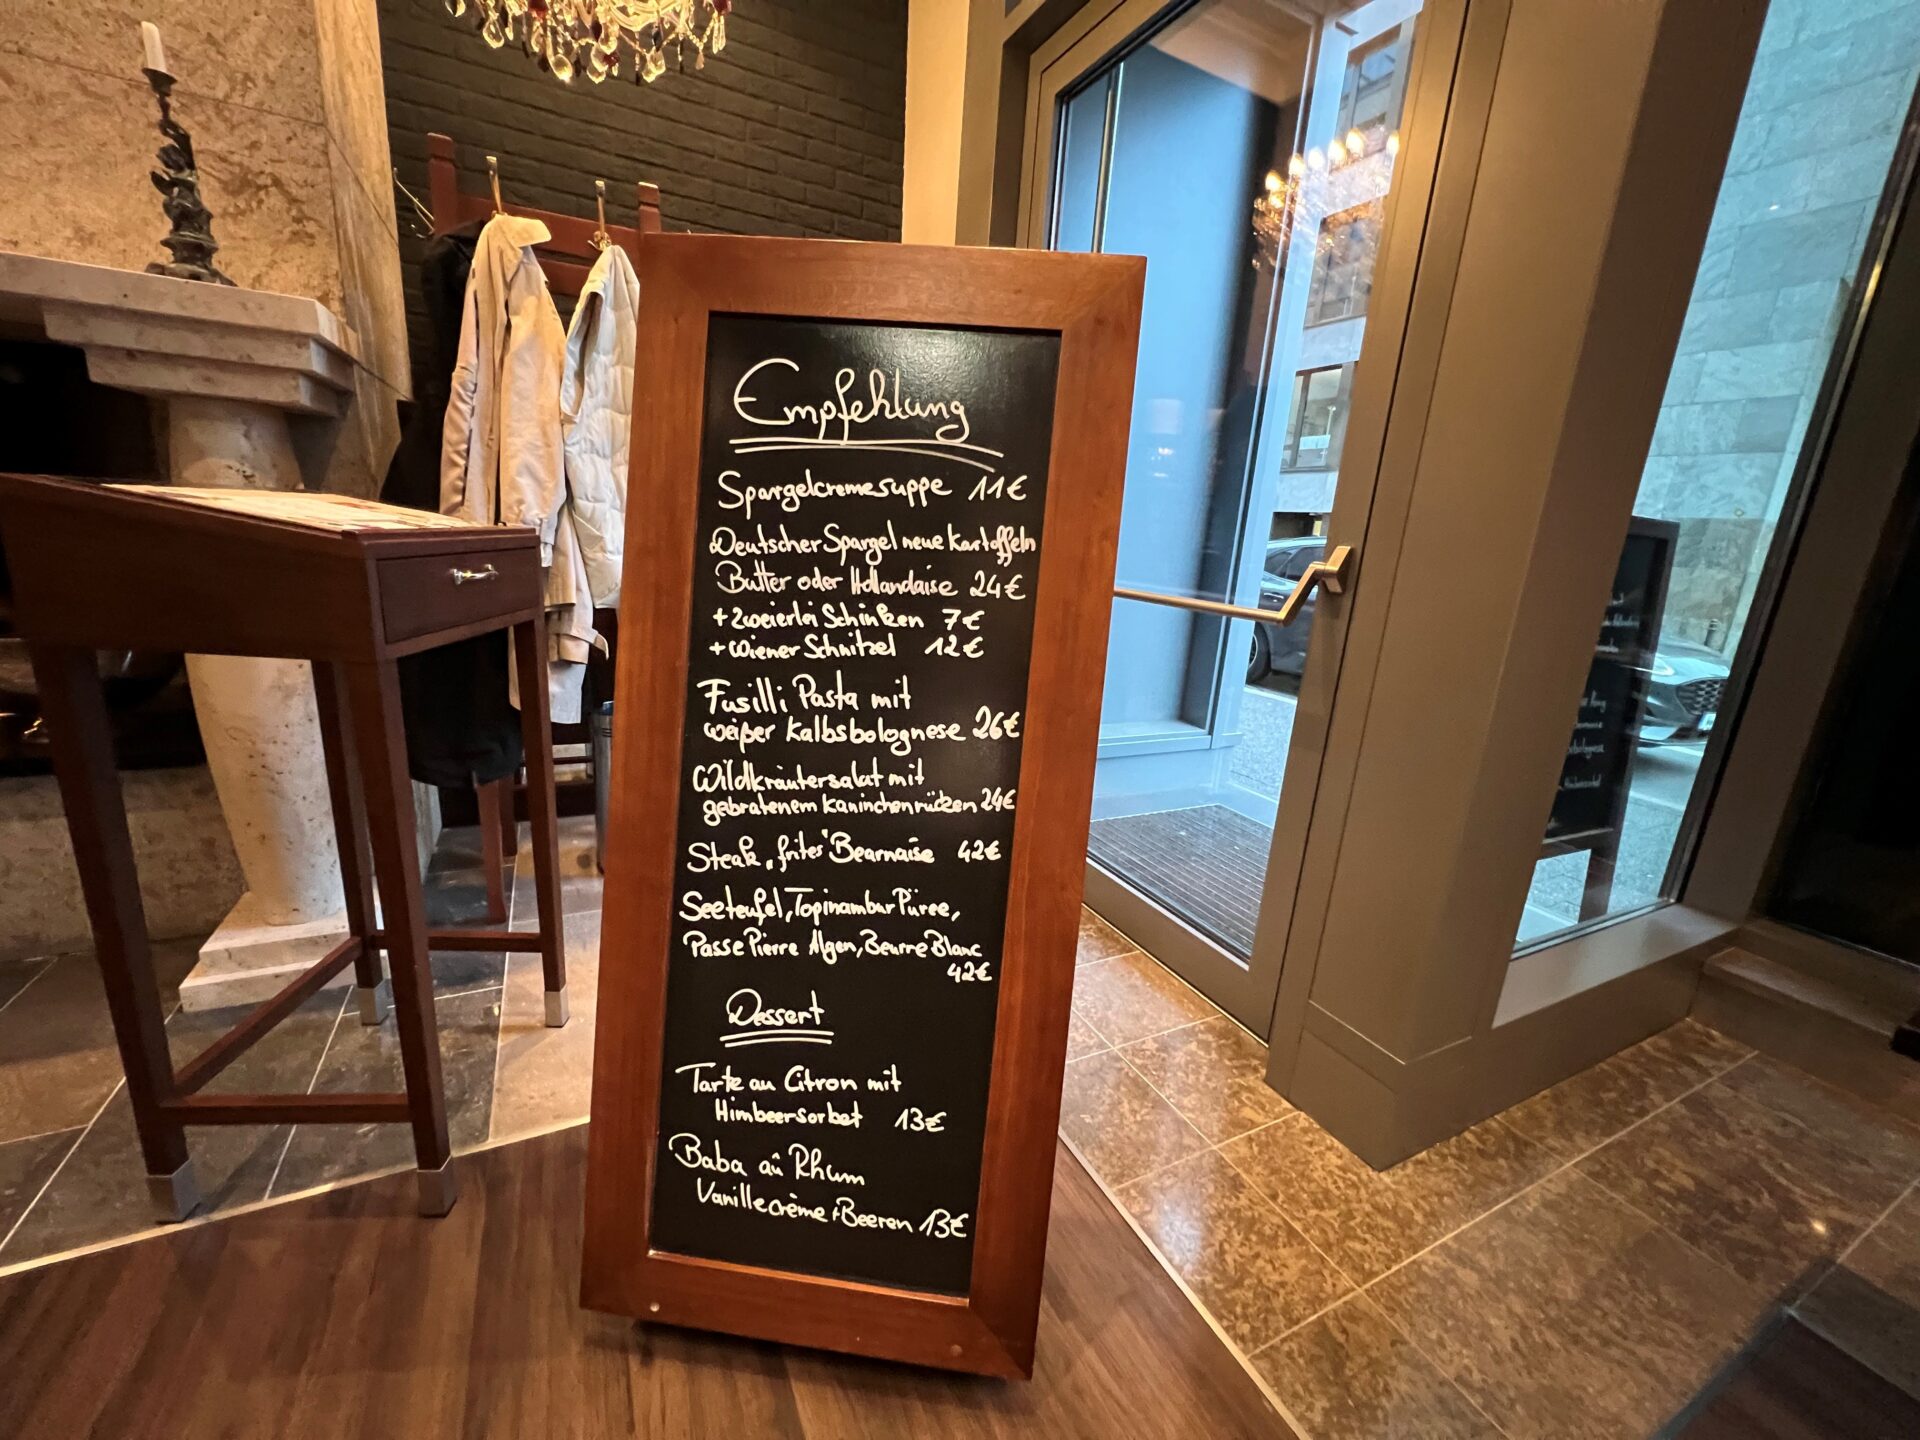 Empfehlung
Spargelcremesuppe 11€
Deutscher Spargel neue Kartoffeln
Butter oder Hollandaise 24€
+ zweierlei Schinken 7€
+ Wiener Schnitzel 12€
Fusilli Pasta mit
weißer Kalbsbolognese 26€
Wildkräutersalat mit
gebratenem Kaninchenrücken 24€
Steak „frites" Bearnaise 42€
Seeteufel, Topinambur Püree,
Passe Pierre Algen, Beurre Blanc
42€
Dessert
Tarte au Citron mit
Himbeersorbet 13€
Baba aû Rhum
Vanillecrème + Beeren 13€